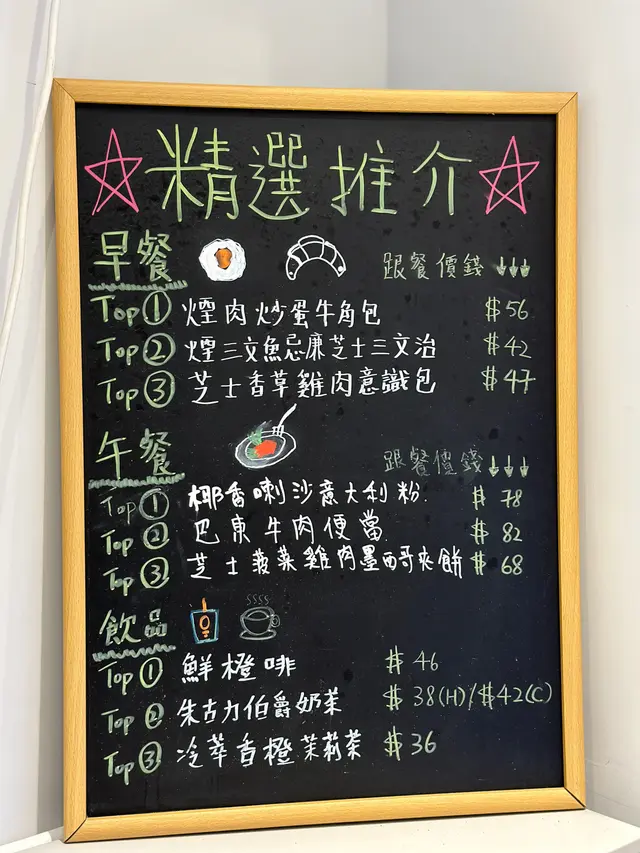 精選推介
早餐 跟餐價錢 ↓↓↓
Top ① 煙肉炒蛋牛角包 $56
Top ② 煙三文魚忌廉芝士三文治 $42
Top ③ 芝士香草雞肉意識包 $47
午餐 跟餐價錢 ↓↓↓
Top ① 椰香喇沙意大利粉 $78
Top ② 巴東牛肉便當 $82
Top ③ 芝士菠菜雞肉墨西哥夾餅 $68
飲品
Top ① 鮮橙啡 $46
Top ② 朱古力伯爵奶茶 $38(H)/$42(C)
Top ③ 冷萃香橙茉莉茶 $36